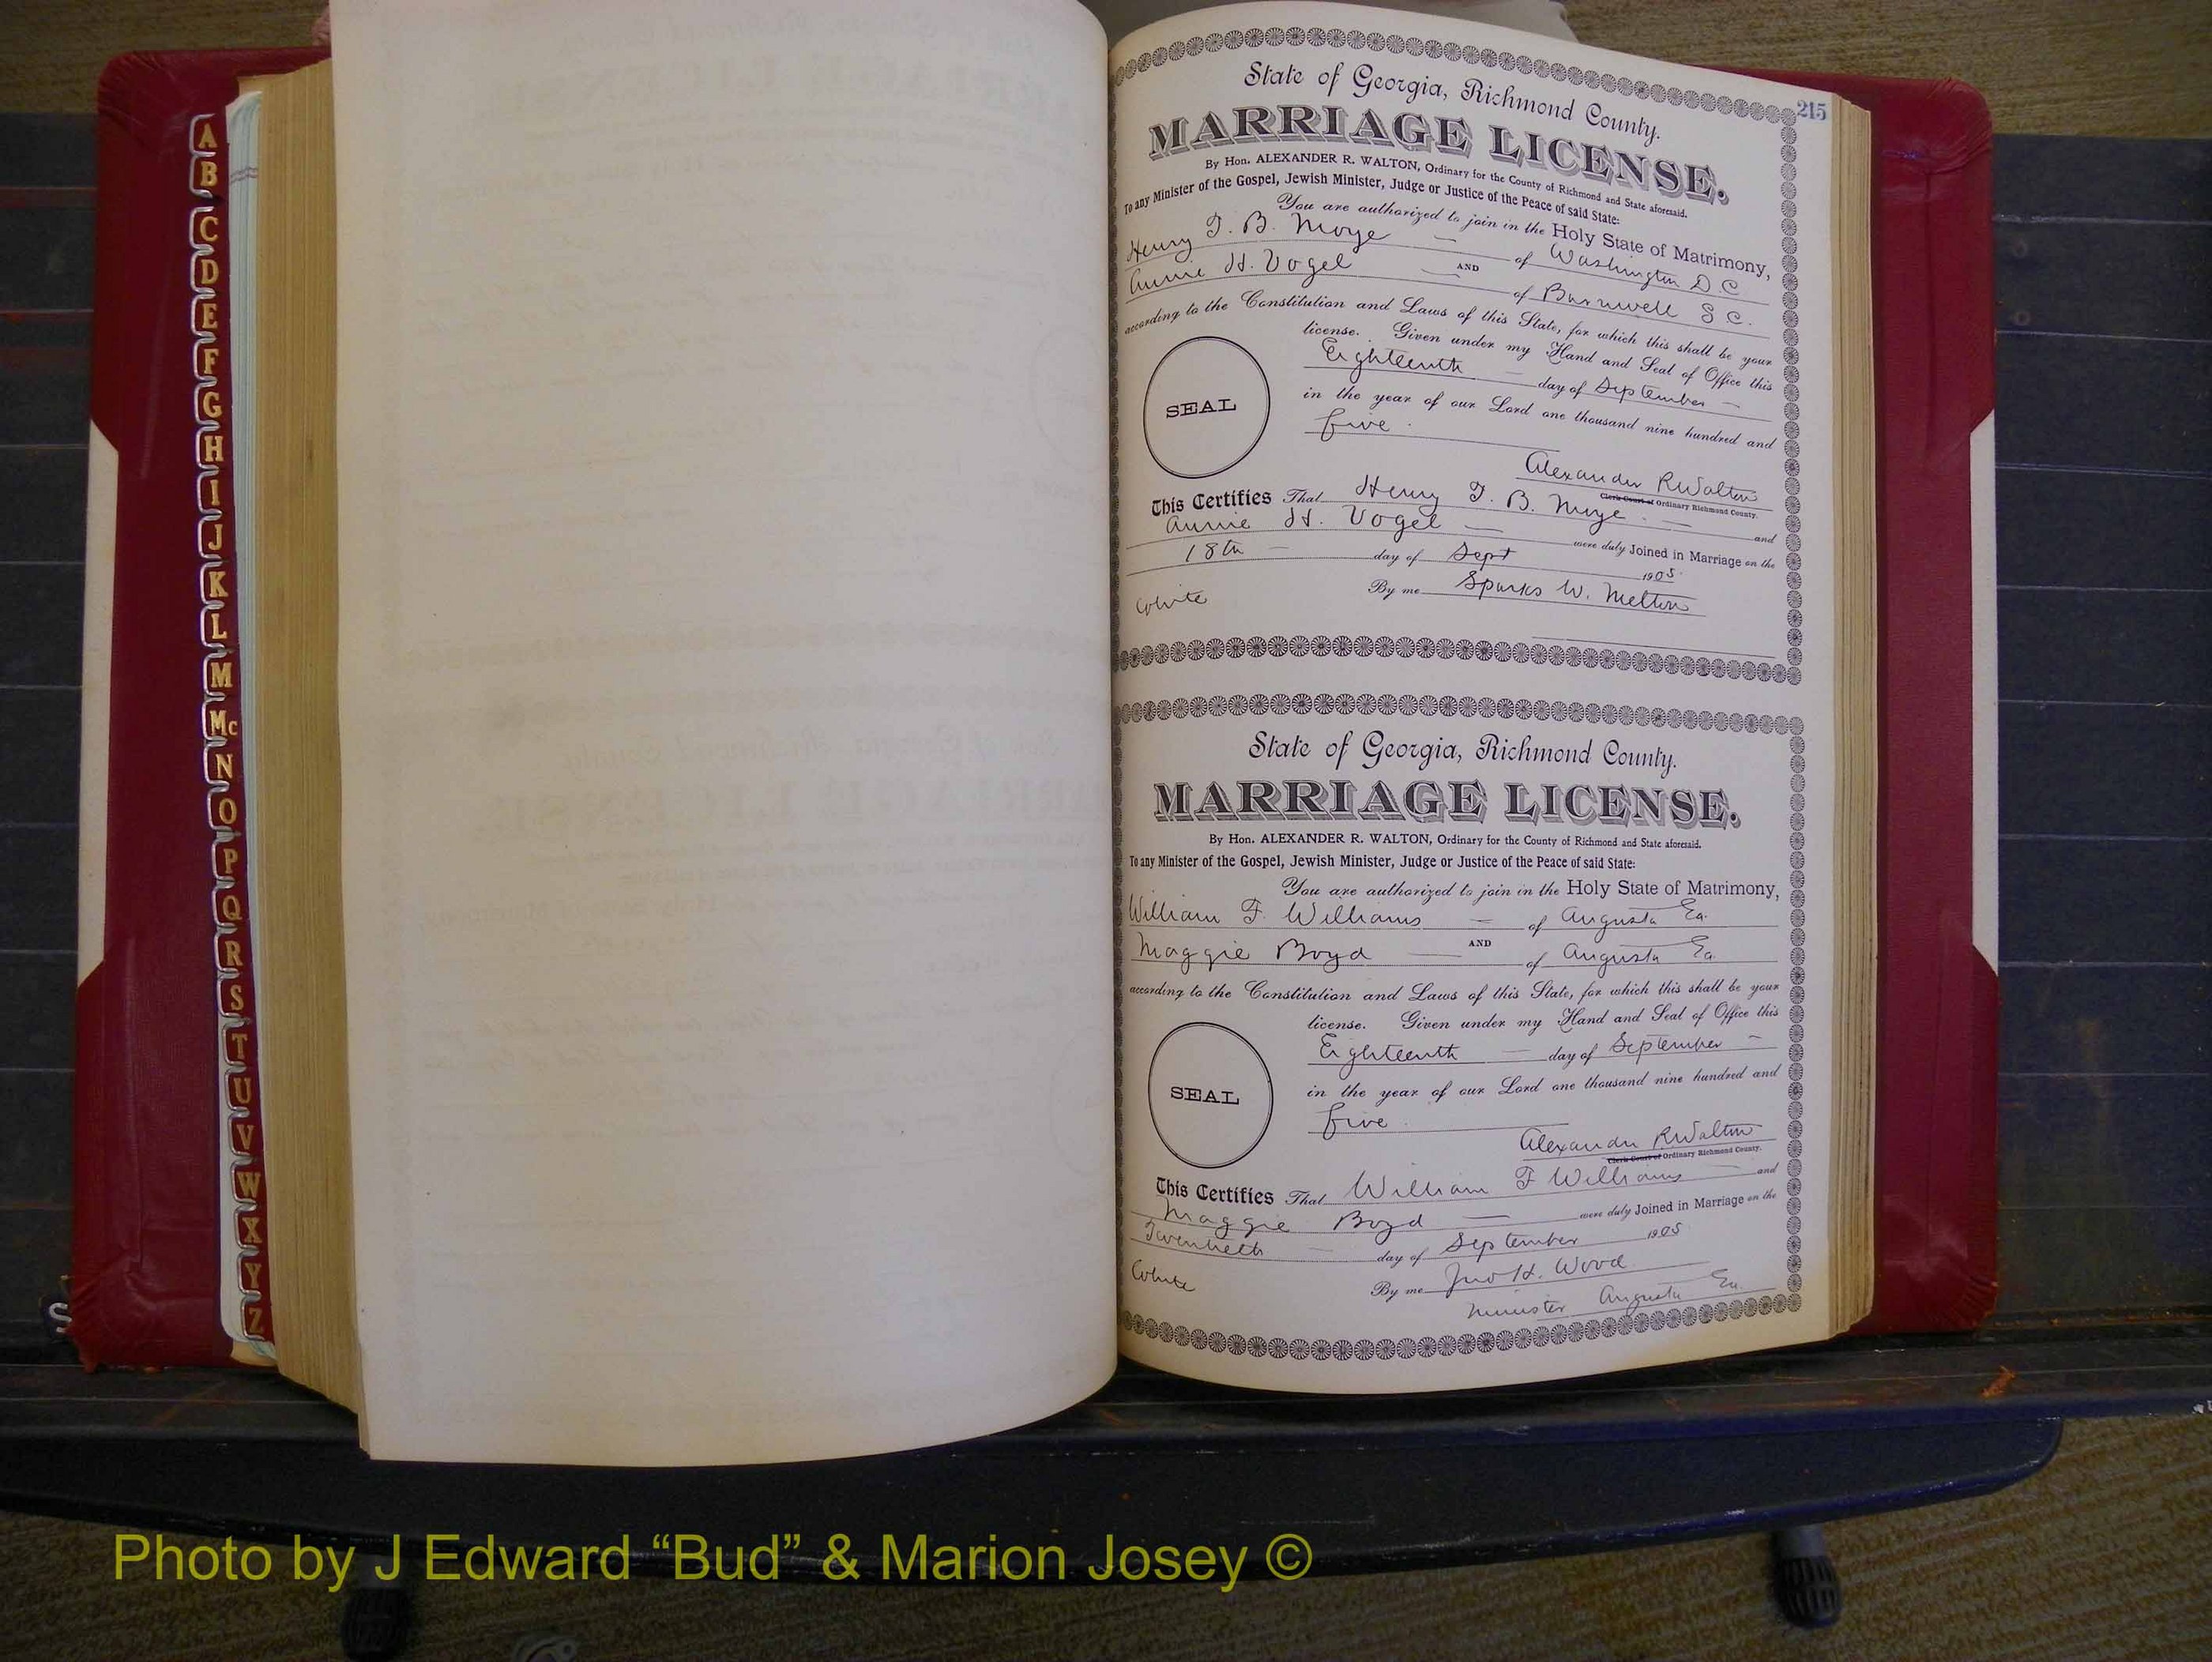 A
B
C
D
E
F
G
H
I
J
K
L
M
Mc
N
O
P
Q
R
S
T
U
V
W
X
Y
Z
215
State of Georgia, Richmond County.
MARRIAGE LICENSE.
By Hon. ALEXANDER R. WALTON, Ordinary for the County of Richmond and State aforesaid.
To any Minister of the Gospel, Jewish Minister, Judge or Justice of the Peace of said State:
You are authorized to join in the Holy State of Matrimony,
Henry T. B. Moye — of Washington D C
AND
Annie H. Vogel — of Barnwell S C.
according to the Constitution and Laws of this State, for which this shall be your
license. Given under my Hand and Seal of Office this
Eighteenth — day of September —
in the year of our Lord one thousand nine hundred and
five.
SEAL
Alexander R Walton
Clerk Court of Ordinary Richmond County.
This Certifies That Henry T. B. Moye — and
Annie H. Vogel — were duly Joined in Marriage on the
18th — day of Sept 1905.
By me Sparks W. Melton
White
State of Georgia, Richmond County.
MARRIAGE LICENSE.
By Hon. ALEXANDER R. WALTON, Ordinary for the County of Richmond and State aforesaid.
To any Minister of the Gospel, Jewish Minister, Judge or Justice of the Peace of said State:
You are authorized to join in the Holy State of Matrimony,
William F. Williams — of Augusta Ga.
AND
Maggie Boyd — of Augusta Ga.
according to the Constitution and Laws of this State, for which this shall be your
license. Given under my Hand and Seal of Office this
Eighteenth — day of September —
in the year of our Lord one thousand nine hundred and
five.
SEAL
Alexander R Walton
Clerk Court of Ordinary Richmond County.
This Certifies That William F Williams — and
Maggie Boyd — were duly Joined in Marriage on the
Twentieth — day of September 1905
White
By me Jno H. Wood
Minister Augusta Ga.
Photo by J Edward “Bud” & Marion Josey ©